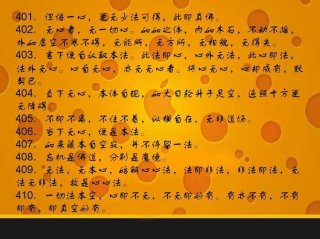 401. 但悟一心，更无少法可得，此即真佛。
402. 无心者，无一切心。如如之体，内如木石，不动不摇，
外如虚空不塞不碍，无能所，无方所，无相貌，无得失。
403. 言下便自认取本法。此法即心，心外无法，此心即法，
法外无心。心自无心，亦无无心者。将心无心，心却成有，默
契已。
404. 直下无心，本体自现，如大日轮升于虚空，遍照十方更
无障碍。
405. 不即不离，不住不着，纵横自在，无非道场。
406. 当下无心，便是本法。
407. 如来藏本自空寂，并不停留一法。
408. 忘机是佛道，分别是魔境。
409. 无法，无本心，始解心心法，法即非法，非法即法，无
法无非法，故是心心法。
410. 一切法本空，心即不无，不无即妙有。有亦不有，不有
即有，即真空妙有。